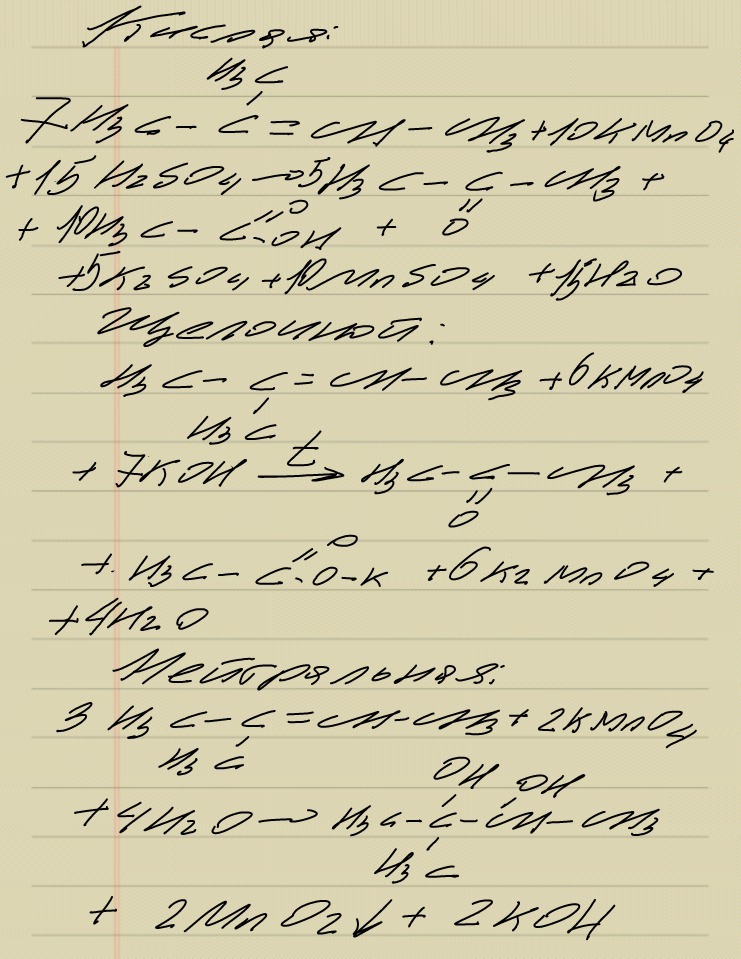 Кислая:
H₃C
7H₃C - C = CH - CH₃ + 10KMnO₄
+ 15H₂SO₄ → 5H₃C - C - CH₃ +
+ 10H₃C - C =O -OH + =O
+ 5K₂SO₄ + 10MnSO₄ + 15H₂O
Щелочной:
H₃C - C = CH - CH₃ + 6KMnO₄
H₃C
+ 7KOH t→ H₃C - C - CH₃ +
=O
+ H₃C - C =O -O-K + 6K₂MnO₄ +
+ 4H₂O
Нейтральная:
3 H₃C - C = CH - CH₃ + 2KMnO₄
H₃C OH OH
+ 4H₂O → H₃C - C - CH - CH₃
H₃C
+ 2MnO₂↓ + 2KOH